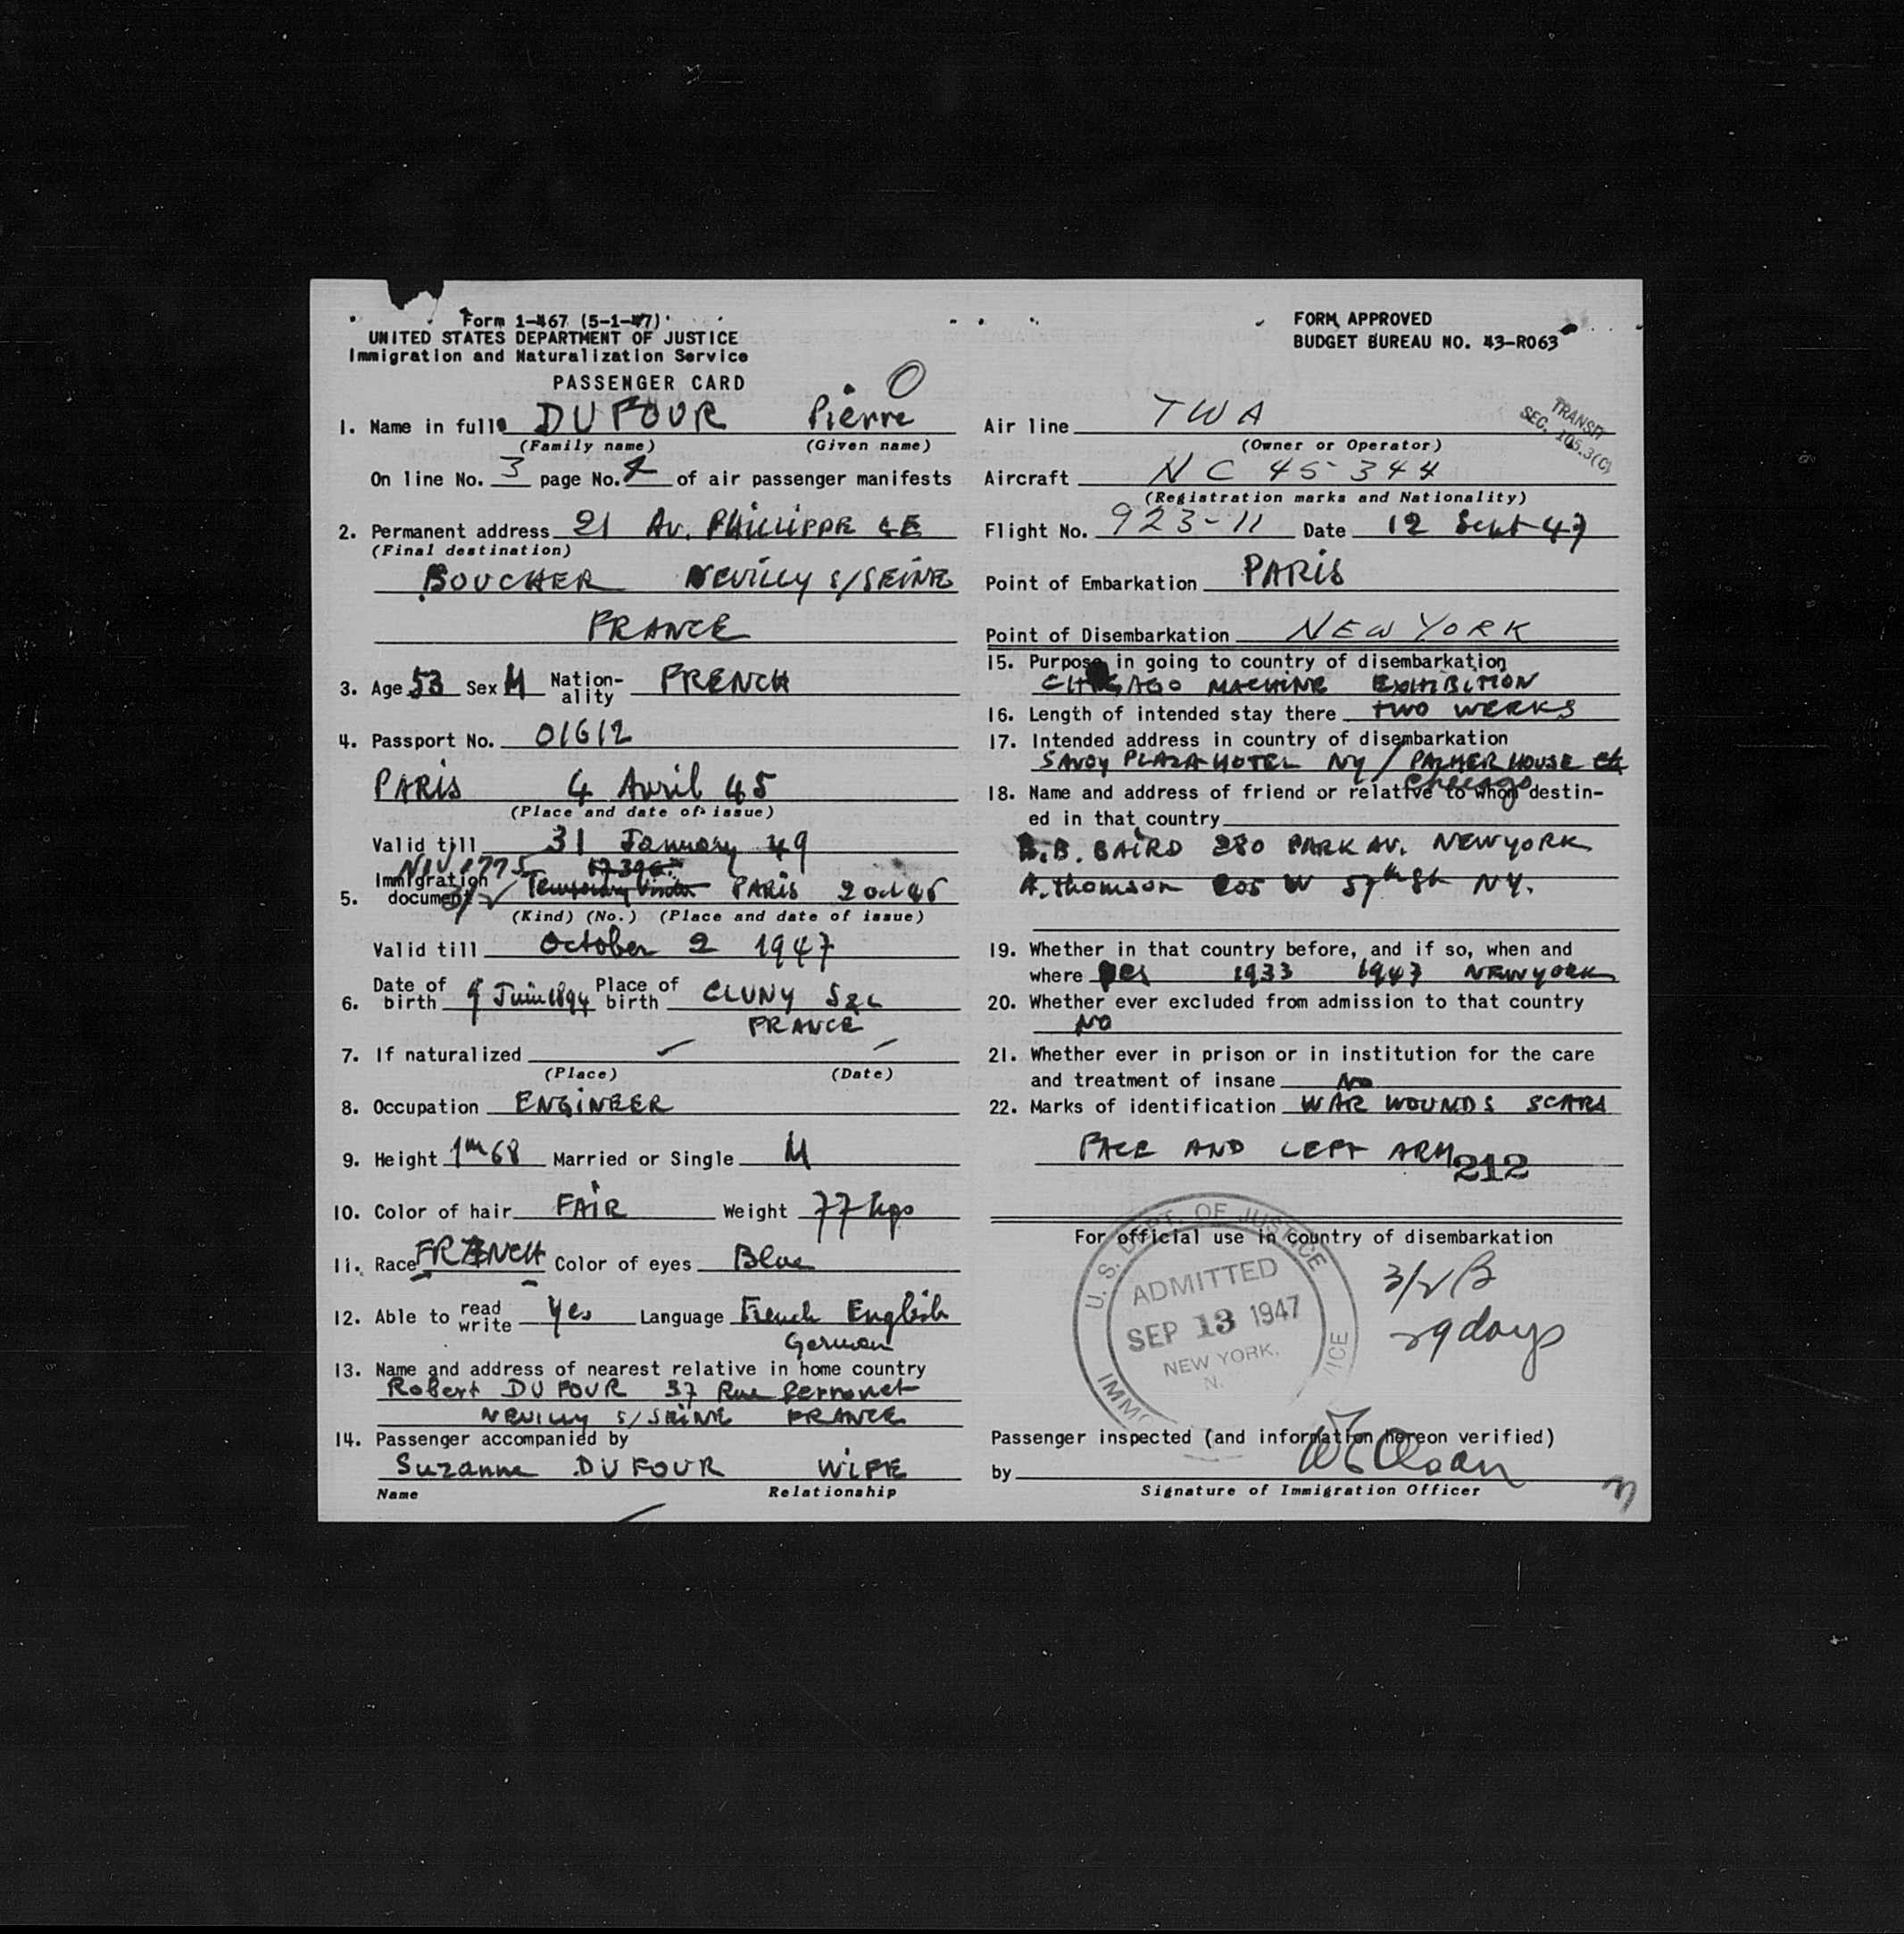 Form I-467 (5-1-47)
UNITED STATES DEPARTMENT OF JUSTICE
Immigration and Naturalization Service
PASSENGER CARD
FORM APPROVED
BUDGET BUREAU NO. 43-R063
TRANSIT
SEC. 105.3(C)
1. Name in full DUFOUR Pierre
(Family name) (Given name)
On line No. 3 page No. of air passenger manifests
2. Permanent address 21 Av. PHILLIPPE LE
(Final destination)
BOUCHER NEUILLY S/SEINE
FRANCE
3. Age 53 Sex M Nationality FRENCH
4. Passport No. 01612
PARIS 4 Avril 45
(Place and date of issue)
Valid till 31 January 49
NIV 1775
5. Immigration document 3/2 Temporary PARIS 2 oct 46
(Kind) (No.) (Place and date of issue)
Valid till October 2 1947
6. Date of birth 9 Juin 1894 Place of birth CLUNY S&L
FRANCE
7. If naturalized
(Place) (Date)
8. Occupation ENGINEER
9. Height 1m68 Married or Single M
10. Color of hair FAIR Weight 77 kgs
11. Race FRENCH Color of eyes Blue
12. Able to read write Yes Language French English
German
13. Name and address of nearest relative in home country
Robert DUFOUR 37 Rue Perronet
NEUILLY S/SEINE FRANCE
14. Passenger accompanied by
Suzanne DUFOUR WIFE
Name Relationship
Air line TWA
(Owner or Operator)
Aircraft NC 45344
(Registration marks and Nationality)
Flight No. 923-11 Date 12 Sept 47
Point of Embarkation PARIS
Point of Disembarkation NEW YORK
15. Purpose in going to country of disembarkation
CHICAGO MACHINE EXHIBITION
16. Length of intended stay there TWO WEEKS
17. Intended address in country of disembarkation
SAVOY PLAZA HOTEL NY / PALMER HOUSE
Chicago
18. Name and address of friend or relative to whom destin-
ed in that country
B.B. BAIRD 280 PARK AV. NEWYORK
A. Thomson 205 W 57th St NY.
19. Whether in that country before, and if so, when and
where yes 1933 1947 NEWYORK
20. Whether ever excluded from admission to that country
NO
21. Whether ever in prison or in institution for the care
and treatment of insane No
22. Marks of identification WAR WOUNDS SCARS
FACE AND LEFT ARM
212
For official use in country of disembarkation
U. S. DEPT. OF JUSTICE
ADMITTED
SEP 13 1947
NEW YORK,
N.
3/2 B
29 days
Passenger inspected (and information hereon verified)
by
Signature of Immigration Officer